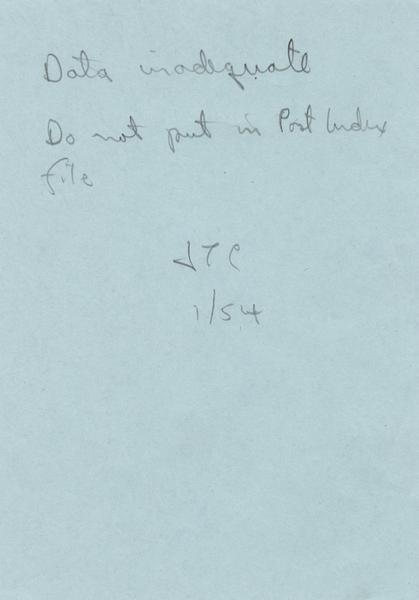 Data inadequate
Do not put in Post Index
file
JTC
1/54